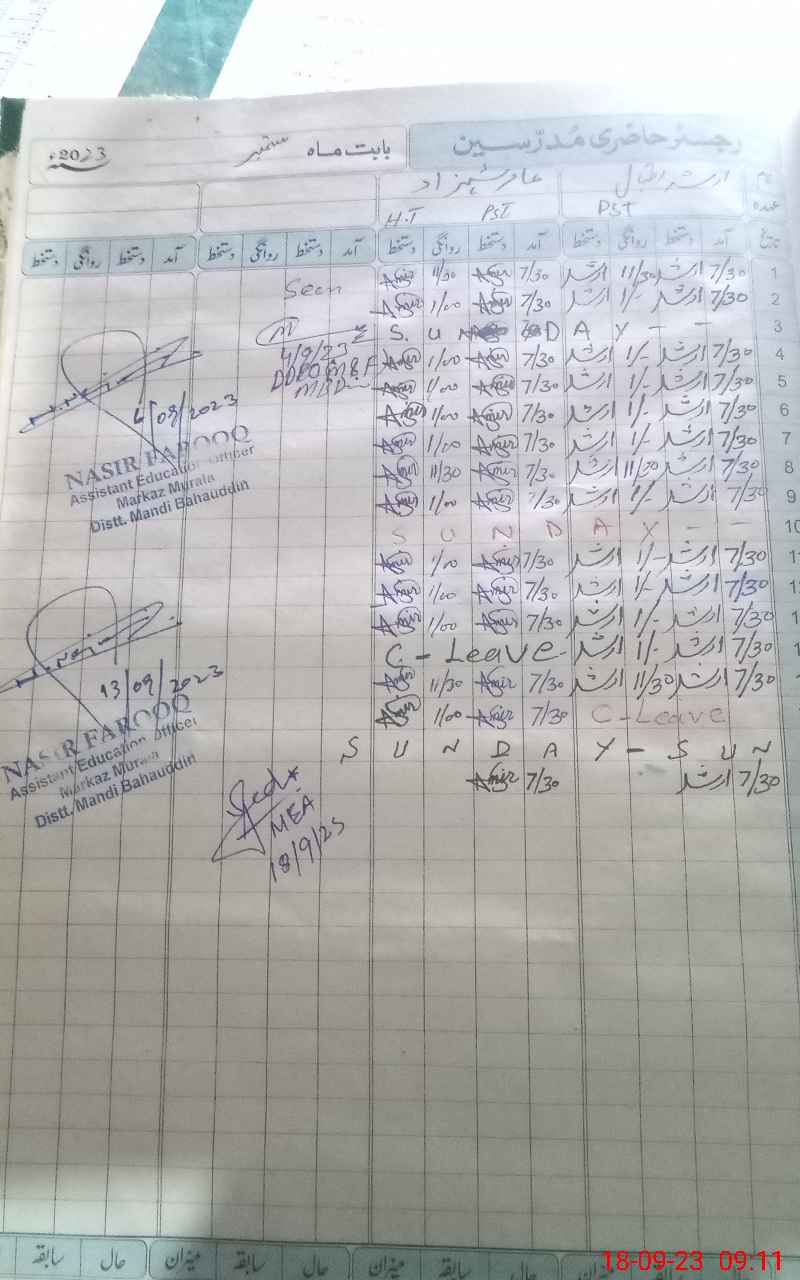 رجسٹر حاضری مُدرّسین بابت ماہ ستمبر 2023ء
نام ارشد اقبال عامر شہزاد
عہدہ PST PST H.T
تاریخ آمد دستخط روانگی دستخط آمد دستخط روانگی دستخط آمد دستخط روانگی دستخط آمد دستخط روانگی دستخط
1 7/30 ارشد 11/30 ارشد 7/30 Amir 11/30 Amir
2 7/30 ارشد 1/- ارشد 7/30 Amir 1/00 Amir
3 S U N D A Y - -
4 7/30 ارشد 1/- ارشد 7/30 Amir 1/00 Amir
5 7/30 ارشد 1/- ارشد 7/30 Amir 1/00 Amir
6 7/30 ارشد 1/- ارشد 7/30 Amir 1/00 Amir
7 7/30 ارشد 1/- ارشد 7/30 Amir 1/00 Amir
8 7/30 ارشد 11/30 ارشد 7/30 Amir 11/30 Amir
9 7/30 ارشد 1/- ارشد 7/30 Amir 1/00 Amir
10 S U N D A Y - -
1 7/30 ارشد 1/- ارشد 7/30 Amir 1/00 Amir
1 7/30 ارشد 1/- ارشد 7/30 Amir 1/00 Amir
1 7/30 ارشد 1/- ارشد 7/30 Amir 1/00 Amir
7/30 ارشد 1/- ارشد C - Leave -
7/30 ارشد 11/30 ارشد 7/30 Amir 11/30 Amir
C-Leave 7/30 Amir 1/00 Amir
S U N D A Y - S U N
7/30 ارشد 7/30 Amir
Seen
4/9/23
09/2023
NASIR FAROOQ
Assistant Education Officer
Markaz Murala
Distt. Mandi Bahauddin
13/09/2023
NASIR FAROOQ
Assistant Education Officer
Markaz Murala
Distt. Mandi Bahauddin
MEA
18/9/23
میزان حال سابقہ میزان حال سابقہ میزان حال سابقہ
18-09-23 09:11